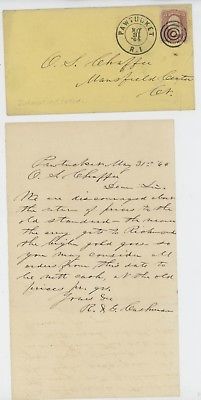 PAWTUCKET
MY
31
R.I.
O. S. Chaffee
Mansfield Center
Ct.
Pawtucket May 31st '64
O. S. Chaffee
Dear Sir.
We are discouraged about
the return of prices to the
old standard - the nearer
the army gets to Richmond
the higher gold goes so
you may consider all
orders from this date to
be nett cash, at the old
prices per gr.
Yours &c
R. & G. Cushman